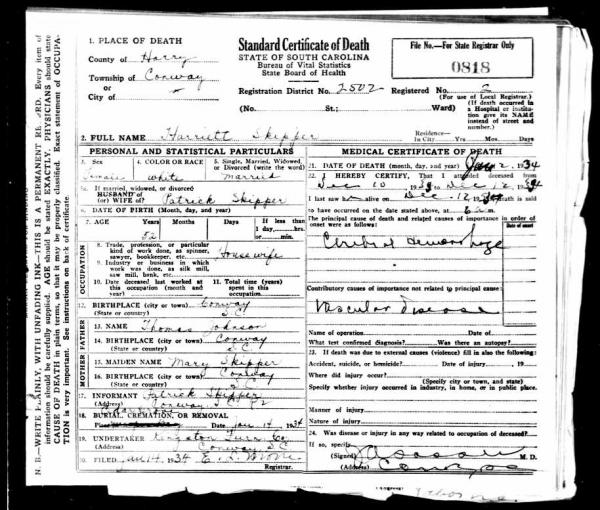 1. PLACE OF DEATH
County of Horry
Township of Conway
or
City of
Standard Certificate of Death
STATE OF SOUTH CAROLINA
Bureau of Vital Statistics
State Board of Health
File No.—For State Registrar Only
0818
Registration District No. 2502
Registered No. 2
(For use of Local Registrar.)
(No. St.; Ward)
(If death occurred in a Hospital or institution give its NAME instead of street and number.)
2. FULL NAME Harriett Skipper
Residence— In City Yrs. Mos. Days
PERSONAL AND STATISTICAL PARTICULARS
3. Sex female
4. COLOR OR RACE white
5. Single, Married, Widowed, or Divorced (write the word) married
5a. If married, widowed, or divorced
HUSBAND of
(or) WIFE of? Patrick Skipper
6. DATE OF BIRTH (Month, day, and year)
7. AGE Years Months Days If less than 1 day, hrs. or min.
52
OCCUPATION
8. Trade, profession, or particular kind of work done, as spinner, sawyer, bookkeeper, etc. Housewife
9. Industry or business in which work was done, as silk mill, saw mill, bank, etc.
10. Date deceased last worked at this occupation (month and year)
11. Total time (years) spent in this occupation
12. BIRTHPLACE (city or town) Conway
(State or country) S.C.
FATHER
13. NAME Thomas Johnson
14. BIRTHPLACE (city or town) Conway
(State or country) S.C.
MOTHER
15. MAIDEN NAME Mary Skipper
16. BIRTHPLACE (city or town) Conway
(State or country) S.C.
17. INFORMANT Patrick Skipper
(Address) Conway
18. BURIAL, CREMATION, OR REMOVAL
Jan 14 1934
19. UNDERTAKER Kingston Furn. Co
(Address) Conway S.C.
20. FILED Jan 14 1934
Registrar.
MEDICAL CERTIFICATE OF DEATH
21. DATE OF DEATH (month, day, and year) 1934
22. I HEREBY CERTIFY, That I attended deceased from
Dec 10 to Dec 12
I last saw h alive on Dec 12 death is said
to have occurred on the date stated above, at 6 a.m.
The principal cause of death and related causes of importance in order of onset were as follows:
Date of onset
Cerebral hemorrhage
Contributory causes of importance not related to principal cause:
Vascular Disease
Name of operation Date of
What test confirmed diagnosis? Was there an autopsy?
23. If death was due to external causes (violence) fill in also the following:
Accident, suicide, or homicide? Date of injury , 19
Where did injury occur?
(Specify city or town, and state)
Specify whether injury occurred in industry, in home, or in public place.
Manner of injury
Nature of injury
24. Was disease or injury in any way related to occupation of deceased?
If so, specify
(Signed) M. D.
(Address)
N. B.—WRITE PLAINLY, WITH UNFADING INK—THIS IS A PERMANENT RECORD. Every item of
information should be carefully supplied. AGE should be stated EXACTLY. PHYSICIANS should state
CAUSE OF DEATH in plain terms, so that it may be properly classified. Exact statement of OCCUPA-
TION is very important. See instructions on back of certificate.